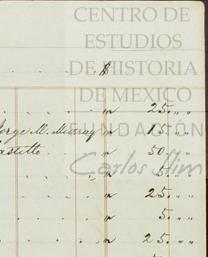 CENTRO DE
ESTUDIOS
DE HISTORIA
DE MEXICO
FUNDACIÓN
Carlos Slim
$
" 25. " "
Jorge M. Murray " 15. " "
Castillo. " 50. " "
" 5. " "
" 25. " "
" 5. " "
" 25. " "